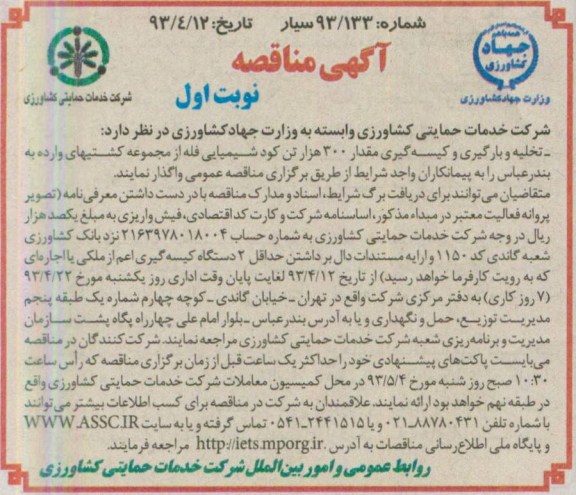 شماره: ۹۳/۱۳۳ سیار
تاریخ: ۹۳/۴/۱۲
همه با هم
جهاد
کشاورزی
وزارت جهاد کشاورزی
آگهی مناقصه
نوبت اول
شرکت خدمات حمایتی کشاورزی
شرکت خدمات حمایتی کشاورزی وابسته به وزارت جهادکشاورزی در نظر دارد:
ـ تخلیه و بارگیری و کیسه گیری مقدار ۳۰۰ هزار تن کود شیمیایی فله از مجموعه کشتیهای وارده به
بندرعباس را به پیمانکاران واجد شرایط از طریق برگزاری مناقصه عمومی واگذار نمایند.
متقاضیان می‌توانند برای دریافت برگ شرایط، اسناد و مدارک مناقصه با در دست داشتن معرفی‌نامه (تصویر
پروانه فعالیت معتبر در مبداء مذکور، اساسنامه شرکت و کارت کد اقتصادی، فیش واریزی به مبلغ یکصد هزار
ریال در وجه شرکت خدمات حمایتی کشاورزی به شماره حساب ۲۱۶۳۹۷۸۰۱۸۰۰۴ نزد بانک کشاورزی
شعبه گاندی کد ۱۱۵۰ و ارایه مستندات دال بر داشتن حداقل ۲ دستگاه کیسه‌گیری اعم از ملکی یا اجاره‌ای
که به رویت کارفرما خواهد رسید) از تاریخ ۹۳/۴/۱۲ لغایت پایان وقت اداری روز یکشنبه مورخ ۹۳/۴/۲۲
(۷ روز کاری) به دفتر مرکزی شرکت واقع در تهران ـ خیابان گاندی ـ کوچه چهارم شماره یک طبقه پنجم
مدیریت توزیع، حمل و نگهداری و یا به آدرس بندرعباس ـ بلوار امام علی چهارراه پگاه پشت سازمان
مدیریت و برنامه‌ریزی شعبه شرکت خدمات حمایتی کشاورزی مراجعه نمایند. شرکت کنندگان در مناقصه
می‌بایست پاکت‌های پیشنهادی خود را حداکثر یک ساعت قبل از زمان برگزاری مناقصه که رأس ساعت
۱۰:۳۰ صبح روز شنبه مورخ ۹۳/۵/۴ در محل کمیسیون معاملات شرکت خدمات حمایتی کشاورزی واقع
در طبقه نهم خواهد بود ارائه نمایند. علاقمندان به شرکت در مناقصه برای کسب اطلاعات بیشتر می‌توانند
با شماره تلفن ۸۸۷۸۰۴۳۱-۰۲۱ و یا ۲۴۴۱۵۱۵-۰۵۴۱ تماس گرفته و یا به سایت WWW.ASSC.IR
و پایگاه ملی اطلاع‌رسانی مناقصات به آدرس http://iets.mporg.ir. مراجعه فرمایند.
روابط عمومی و امور بین‌الملل شرکت خدمات حمایتی کشاورزی